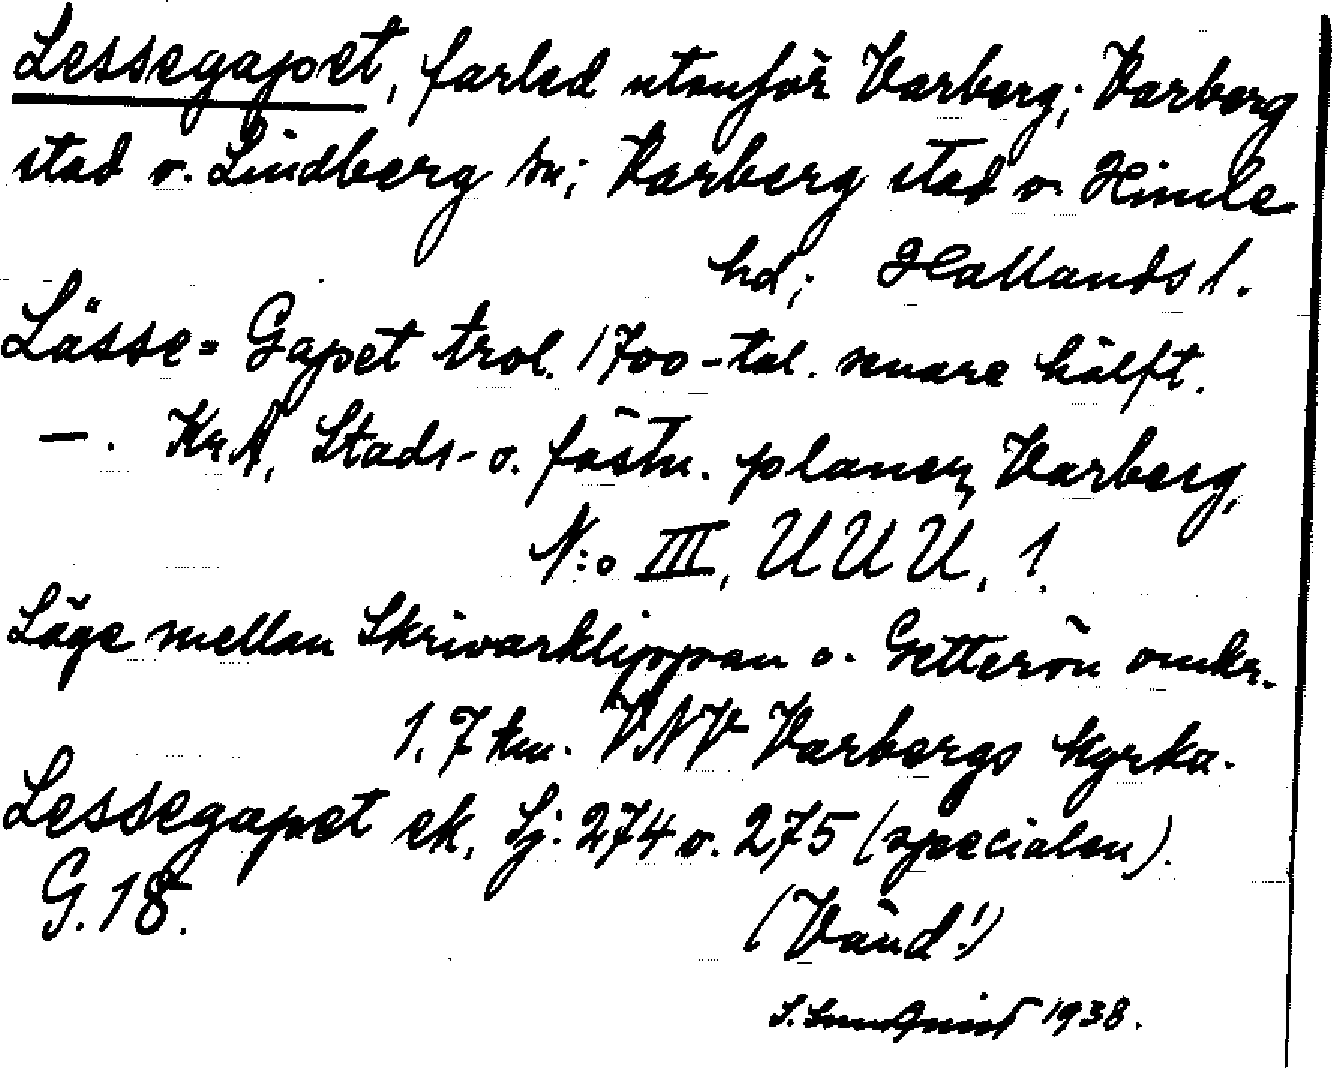 Lessegapet, farled utanför Varberg; Varberg
stad o. Lindberg sn; Varberg stad o. Himle
hd; Hallands l.
Lässe= Gapet trol. 1700-tal. senare hälft.
—. Kr.A. Stads- o. fästn. planer, Varberg,
N:o III, UUU, 1.
Läge mellan Skrivarklippan o. Getterön omkr.
1,7 km. VNV Varbergs kyrka.
Lessegapet ek. Sj: 274 o. 275 (specialen).
G. 18.
(Vänd!)
S. 1938.